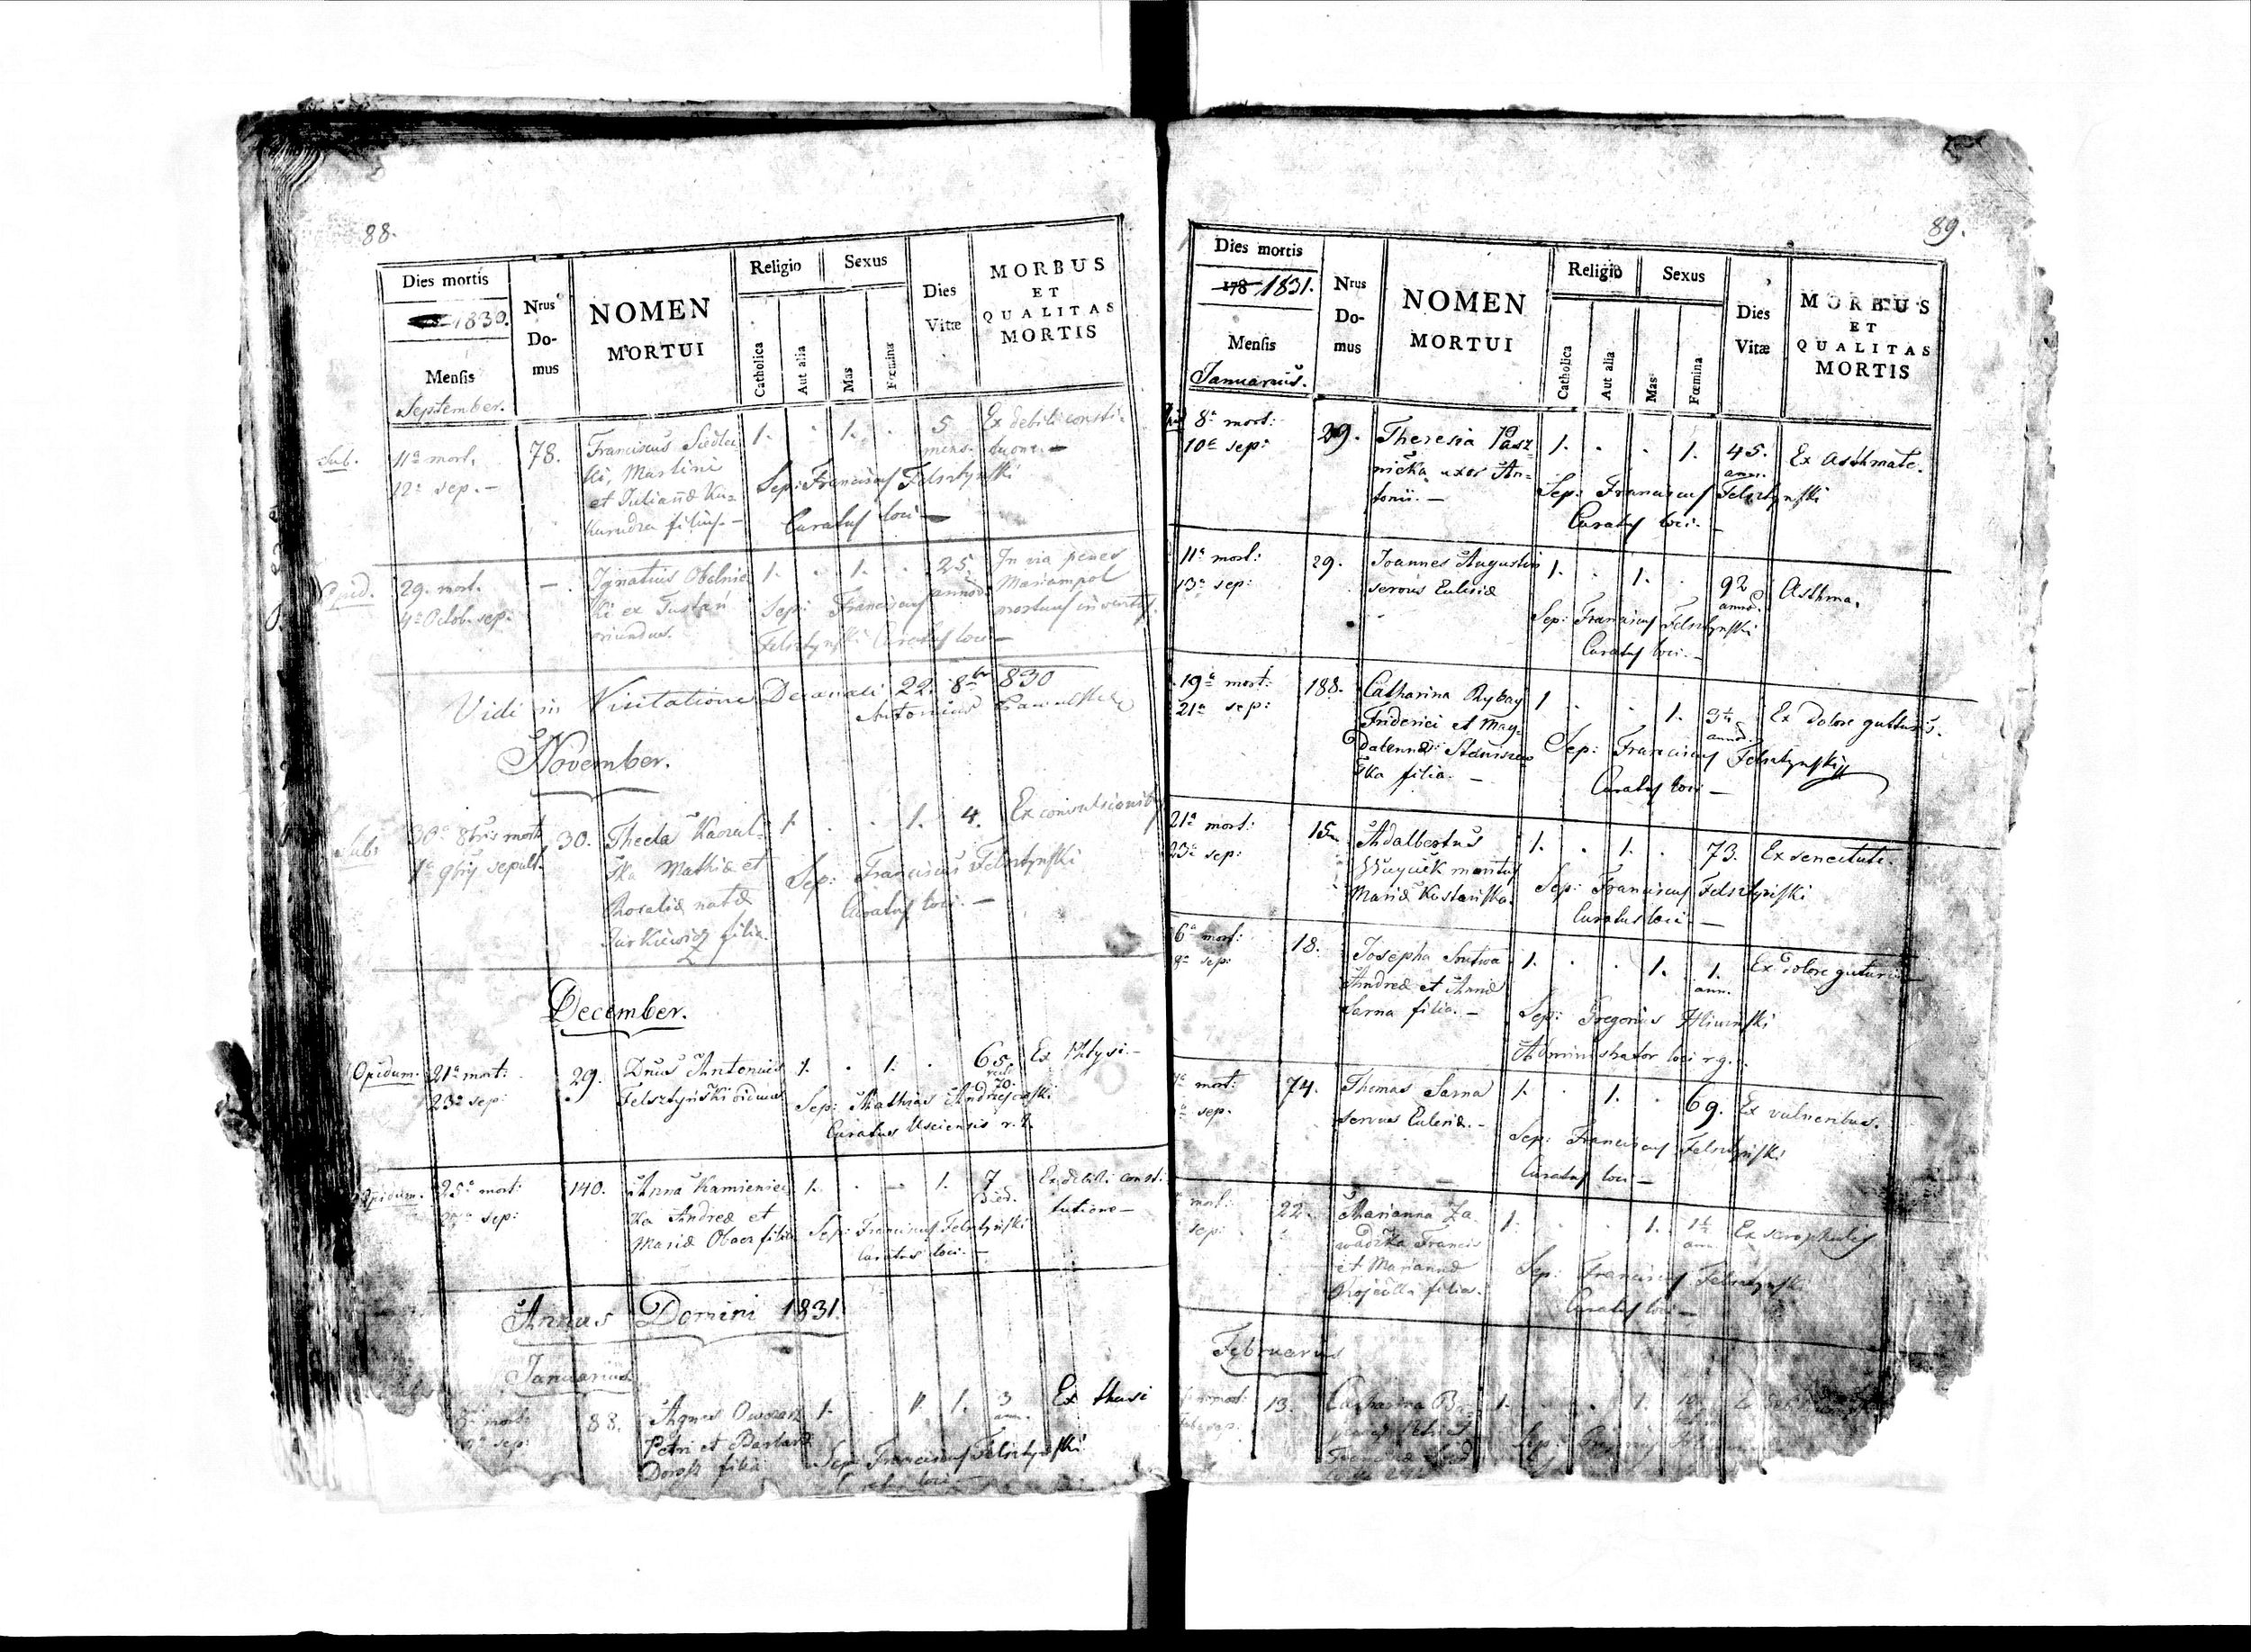 88.
Dies mortis
1830.
Mensis
September.
Nrus
Do-
mus
NOMEN
MORTUI
Religio
Catholica
Aut alia
Sexus
Mas
Fœmina
Dies
Vitæ
MORBUS
ET
QUALITAS
MORTIS
Sub.
11a mort.
12a sep. —
78.
Franciscus Siedlec
ki, Martini
et Julianæ Ku=
filius. —
1. . 1. .
5
mens.
Ex debili consti-
tuone. —
Sep: Franciscus Felsztyński
Curatus loci —
Opid.
29. mort.
4a Octob. sep:
—
Ignatius Obelnic
ki ex Justań
oriundus.
1. . 1. .
25.
annor.
In via penes
Mariampol
mortuus inventus.
Sep: Franciscus
Felsztyński Curatus loci —
Vidi in Visitatione Decanali 22. 8br 830
Antonius
November.
Sub:
30a 8bris mort.
1a 9bris sepult.
30.
Thecla Kaczul-
ska Mathiæ et
Rosaliæ natæ
Jurkiewicz filia.
1. . . 1. 4.
Ex convulsionibus
Sep: Franciscus Felsztyński
Curatus loci. —
December.
Opidum.
21a mort:
23a sep:
29.
Dnus Antonius
Felsztyński viduus
1. . 1. .
65.
vel
70.
Ex Phtysi. —
Sep: Mathias Andrzejowski
Curatus Usciensis r. l.
Opidum.
25a mort:
27a sep:
140.
Anna Kamieniec
ka Andreæ et
Mariæ Obacz filia
1. . — 1.
7
died.
Ex debili consti-
tutione —
Sep: Franciscus Felsztyński
Curatus loci. —
Annus Domini 1831.
Januarius.
8a mort:
10a sep:
88.
Agnes Owczarz
Petri et Barbaræ
Dorosz filia
1. . 1.
3
ann.
Ex thusi
Sep: Franciscus Felsztyński
Curatus loci —
89.
Dies mortis
178 1831.
Mensis
Januarius.
Nrus
Do-
mus
NOMEN
MORTUI
Religio
Catholica
Aut alia
Sexus
Mas
Fœmina
Dies
Vitæ
MORBUS
ET
QUALITAS
MORTIS
8a mort:
10a sep:
29.
Theresia Pasz
nicka uxor An=
tonii. —
1. . . 1.
45.
ann.
Ex Asthmate.
Sep: Franciscus Felsztyński
Curatus loci. —
11a mort:
13a sep:
29.
Joannes Augustin
servus Eclesiæ
1. . 1. .
92
annor.
Asthma.
Sep: Franciscus Felsztyński
Curatus loci. —
19a mort:
21a sep:
188.
Catharina Rybay
Friderici et Mag=
dalennæ Staniszew
ska filia. —
1 . . 1.
annor.
Ex dolore gutturis.
Sep: Franciscus Felsztyński
Curatus loci —
21a mort:
23a sep:
15.
Adalbertus
Wuycik maritus
Mariæ Kostańska.
1. . 1. .
73.
Ex senectute.
Sep: Franciscus Felsztyński
Curatus loci —
6a mort:
8a sep:
18.
Josepha Srutwa
Andreæ et Annæ
Sarna filia. —
1. . . 1.
1.
ann.
Ex dolore guturis
Sep: Gregorius Hliwiński
Administrator loci r. g.
mort:
sep.
74.
Thomas Sarna
servus Eclesiæ. —
1. . 1. .
69.
Ex vulneribus.
Sep: Franciscus Felsztyński
Curatus loci —
mort:
sep:
22.
Marianna Za
wadzka Francis
et Mariannæ
filia.
1. . . 1.
1½
ann.
Ex scrophulis
Sep: Franciscus Felsztyński
Curatus loci —
Februarius
mort
13.
Catharina
1. . . 1.
10.
Ex
Sep: